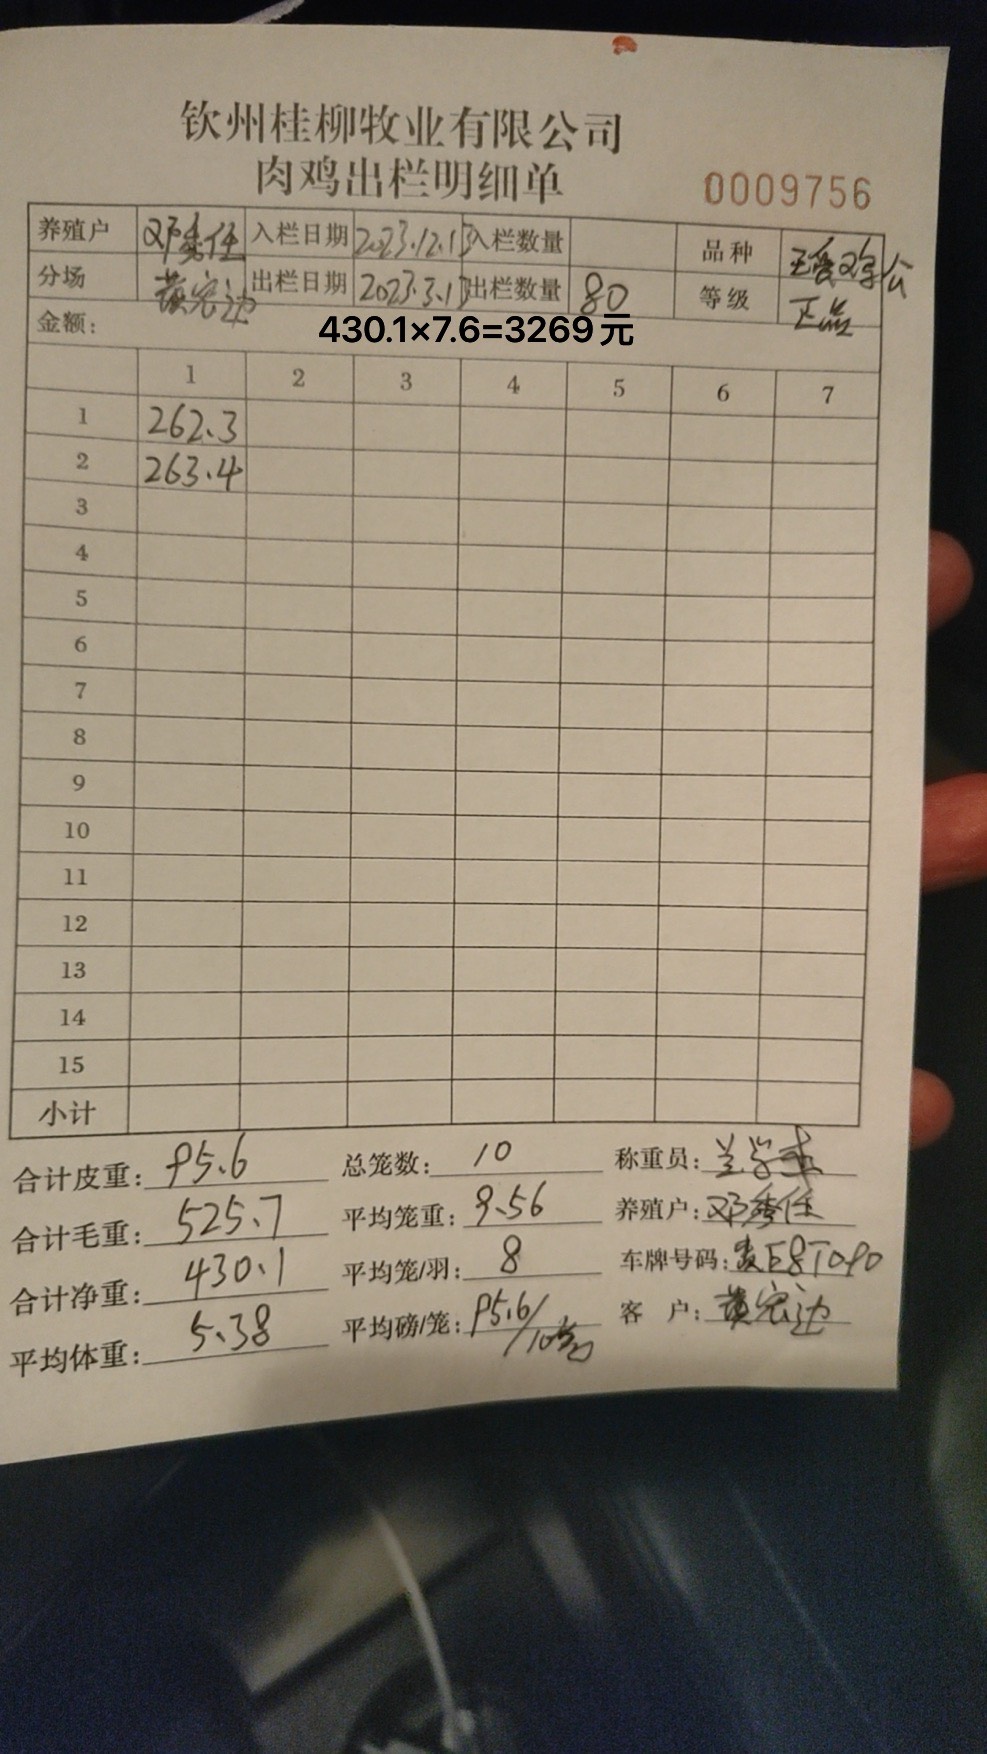 钦州桂柳牧业有限公司
肉鸡出栏明细单
0009756
养殖户 邓秀任 入栏日期 2023.12.13 入栏数量 品种 公
分场 黄宏边 出栏日期 2023.3.13 出栏数量 80 等级 正品
金额: 430.1×7.6=3269元
1 2 3 4 5 6 7
1 262.3
2 263.4
3
4
5
6
7
8
9
10
11
12
13
14
15
小计
合计皮重: 95.6 总笼数: 10 称重员: 兰学
合计毛重: 525.7 平均笼重: 9.56 养殖户: 邓秀任
合计净重: 430.1 平均笼/羽: 8 车牌号码:
平均体重: 5.38 平均磅/笼: 95.6/10 客 户: 黄宏边